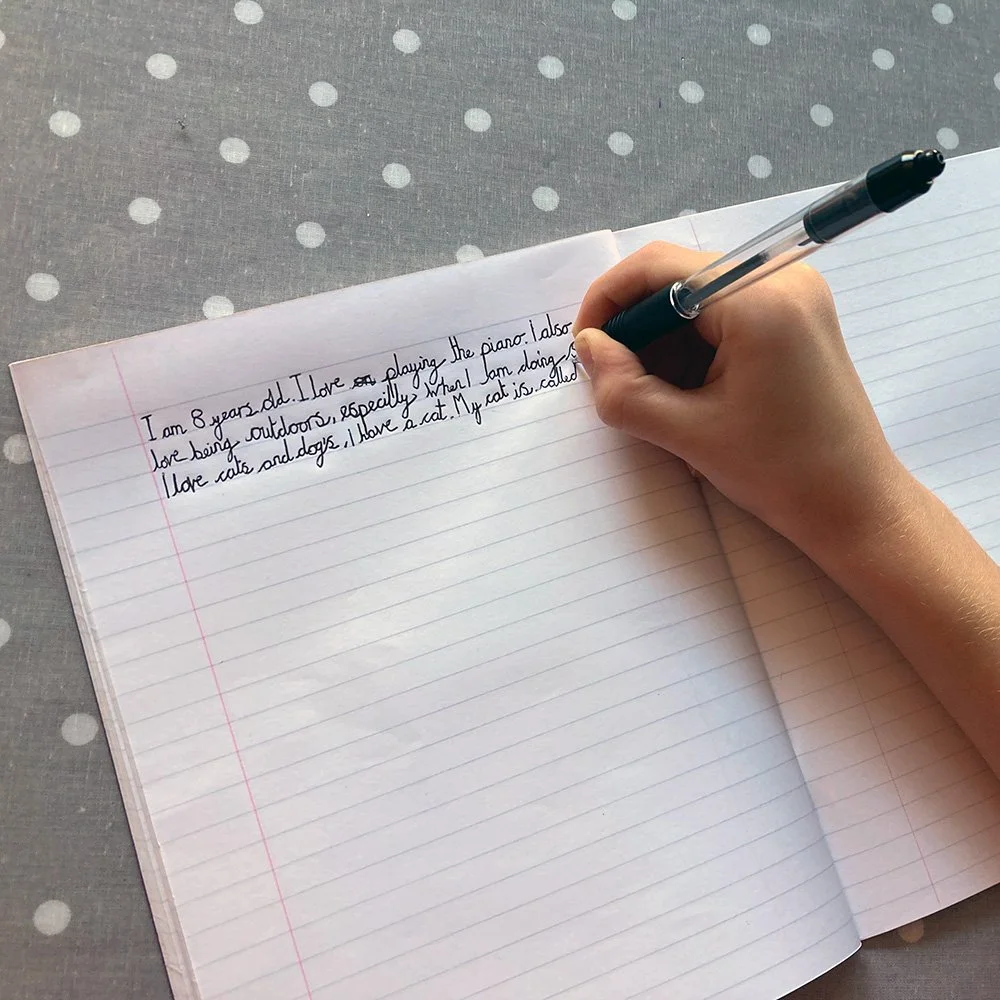 I am 8 years old. I love playing the piano. I also
love being outdoors, especilly when I am doing
I love cats and dogs, I have a cat. My cat is called